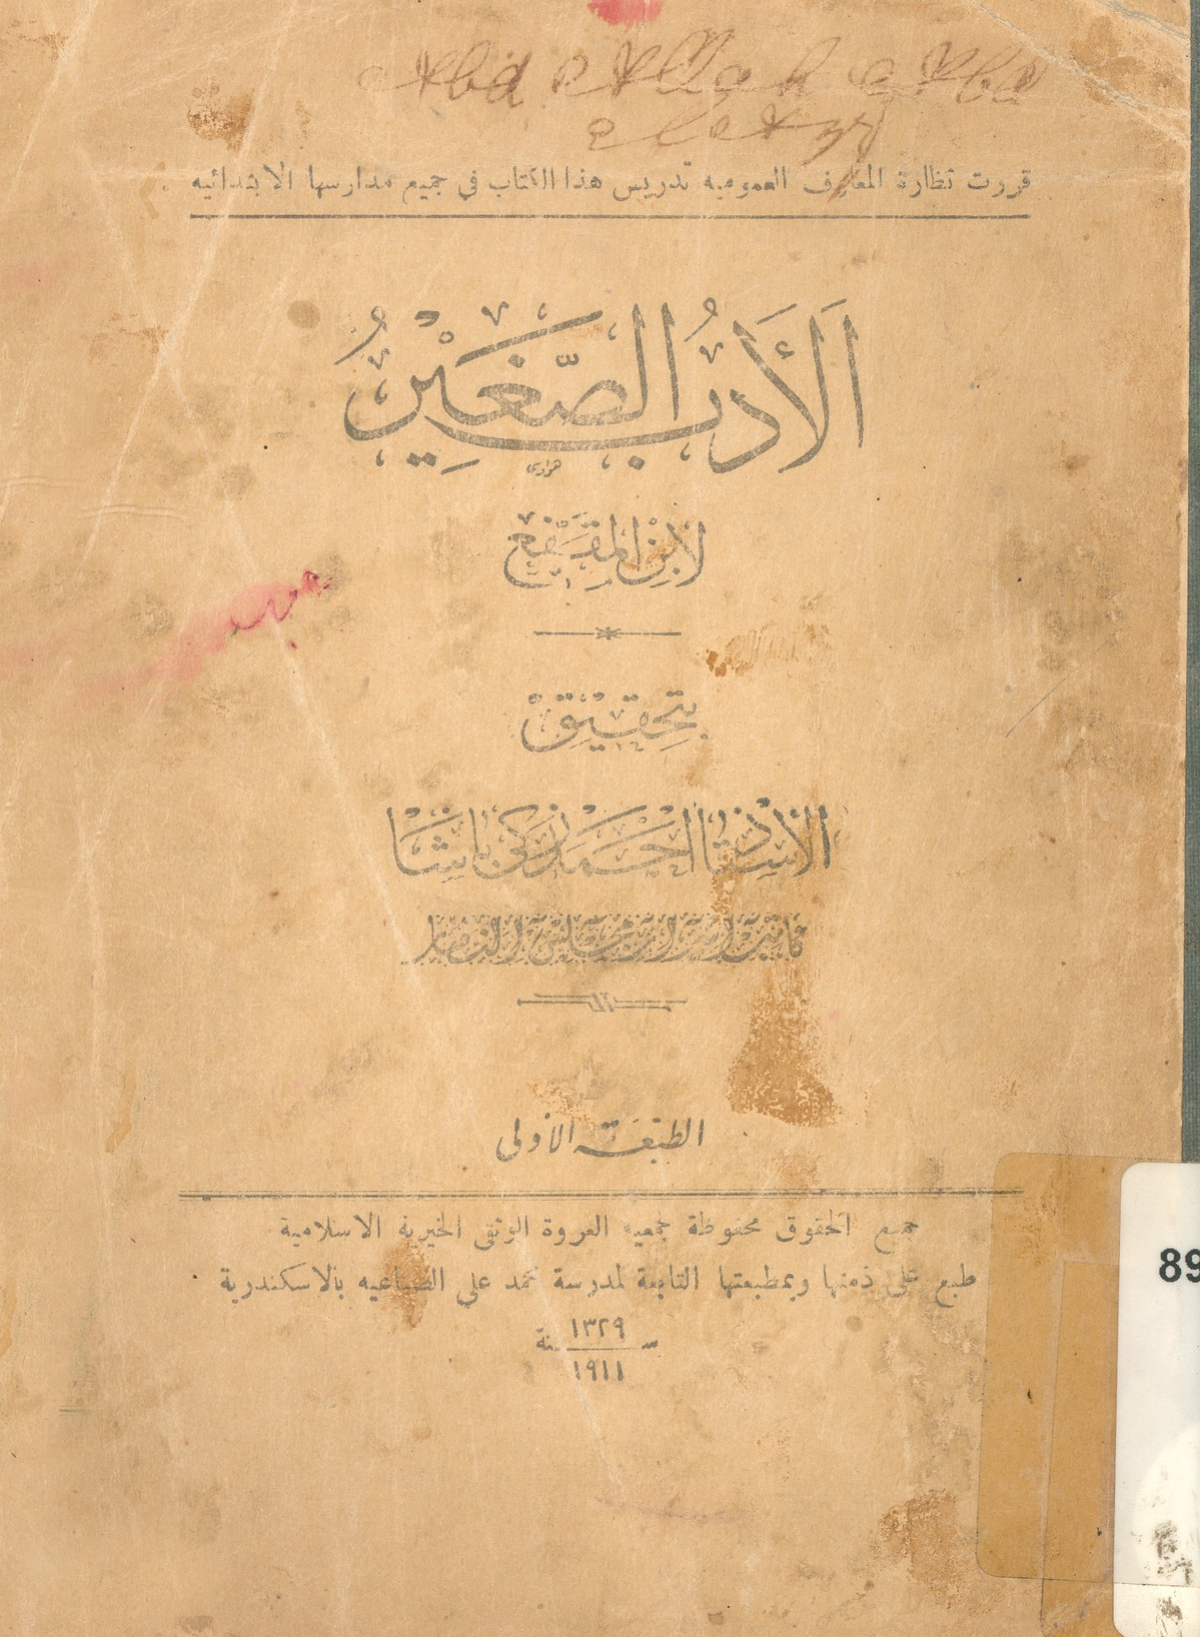 Abd Allah Abd
قررت نظارة المعارف العمومية تدريس هذا الكتاب في جميع مدارسها الابتدائيه
اَلأَدَبُ الصَّغِيْرُ
هواوى
لِابْنِ الْمُقَفَّعِ
بِتَحْقِيْقِ
الأُسْتَاذْ أَحْمَدْ زَكِي بَاشَا
كاتب أسرار مجلس النظار
الطبعة الأولى
جميع الحقوق محفوظة لجمعيه العروة الوثقى الخيرية الاسلامية
طبع على ذمتها وبمطبعتها التابعة لمدرسة محمد علي الصناعيه بالاسكندرية
سنة ١٣٢٩
١٩١١
89